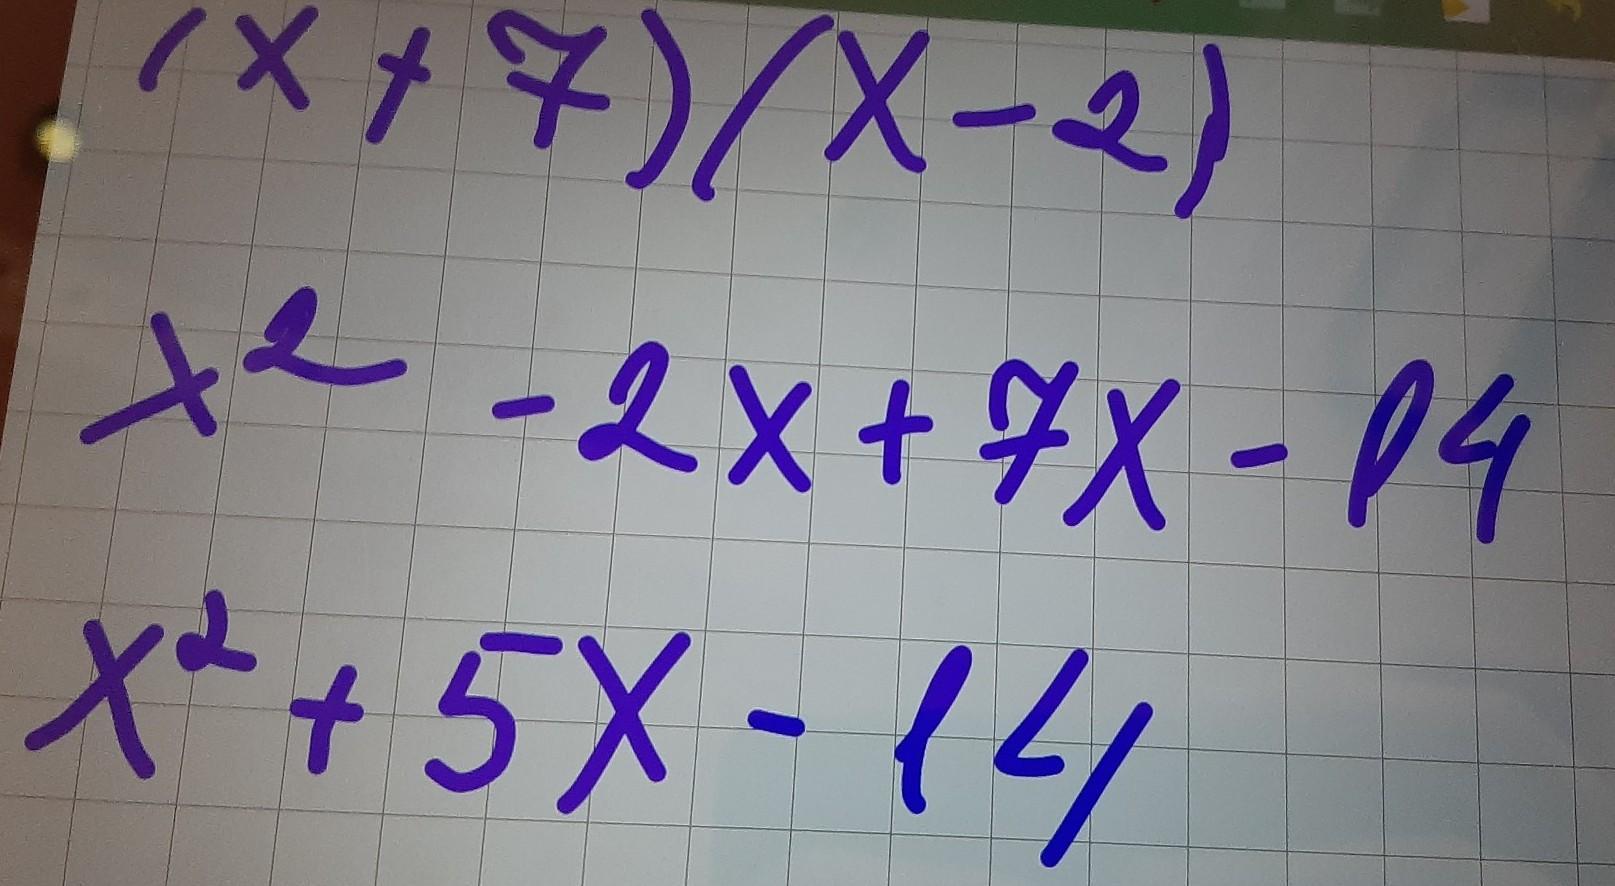 (x+7)(x-2)
x² -2x+7x-14
x²+5x-14